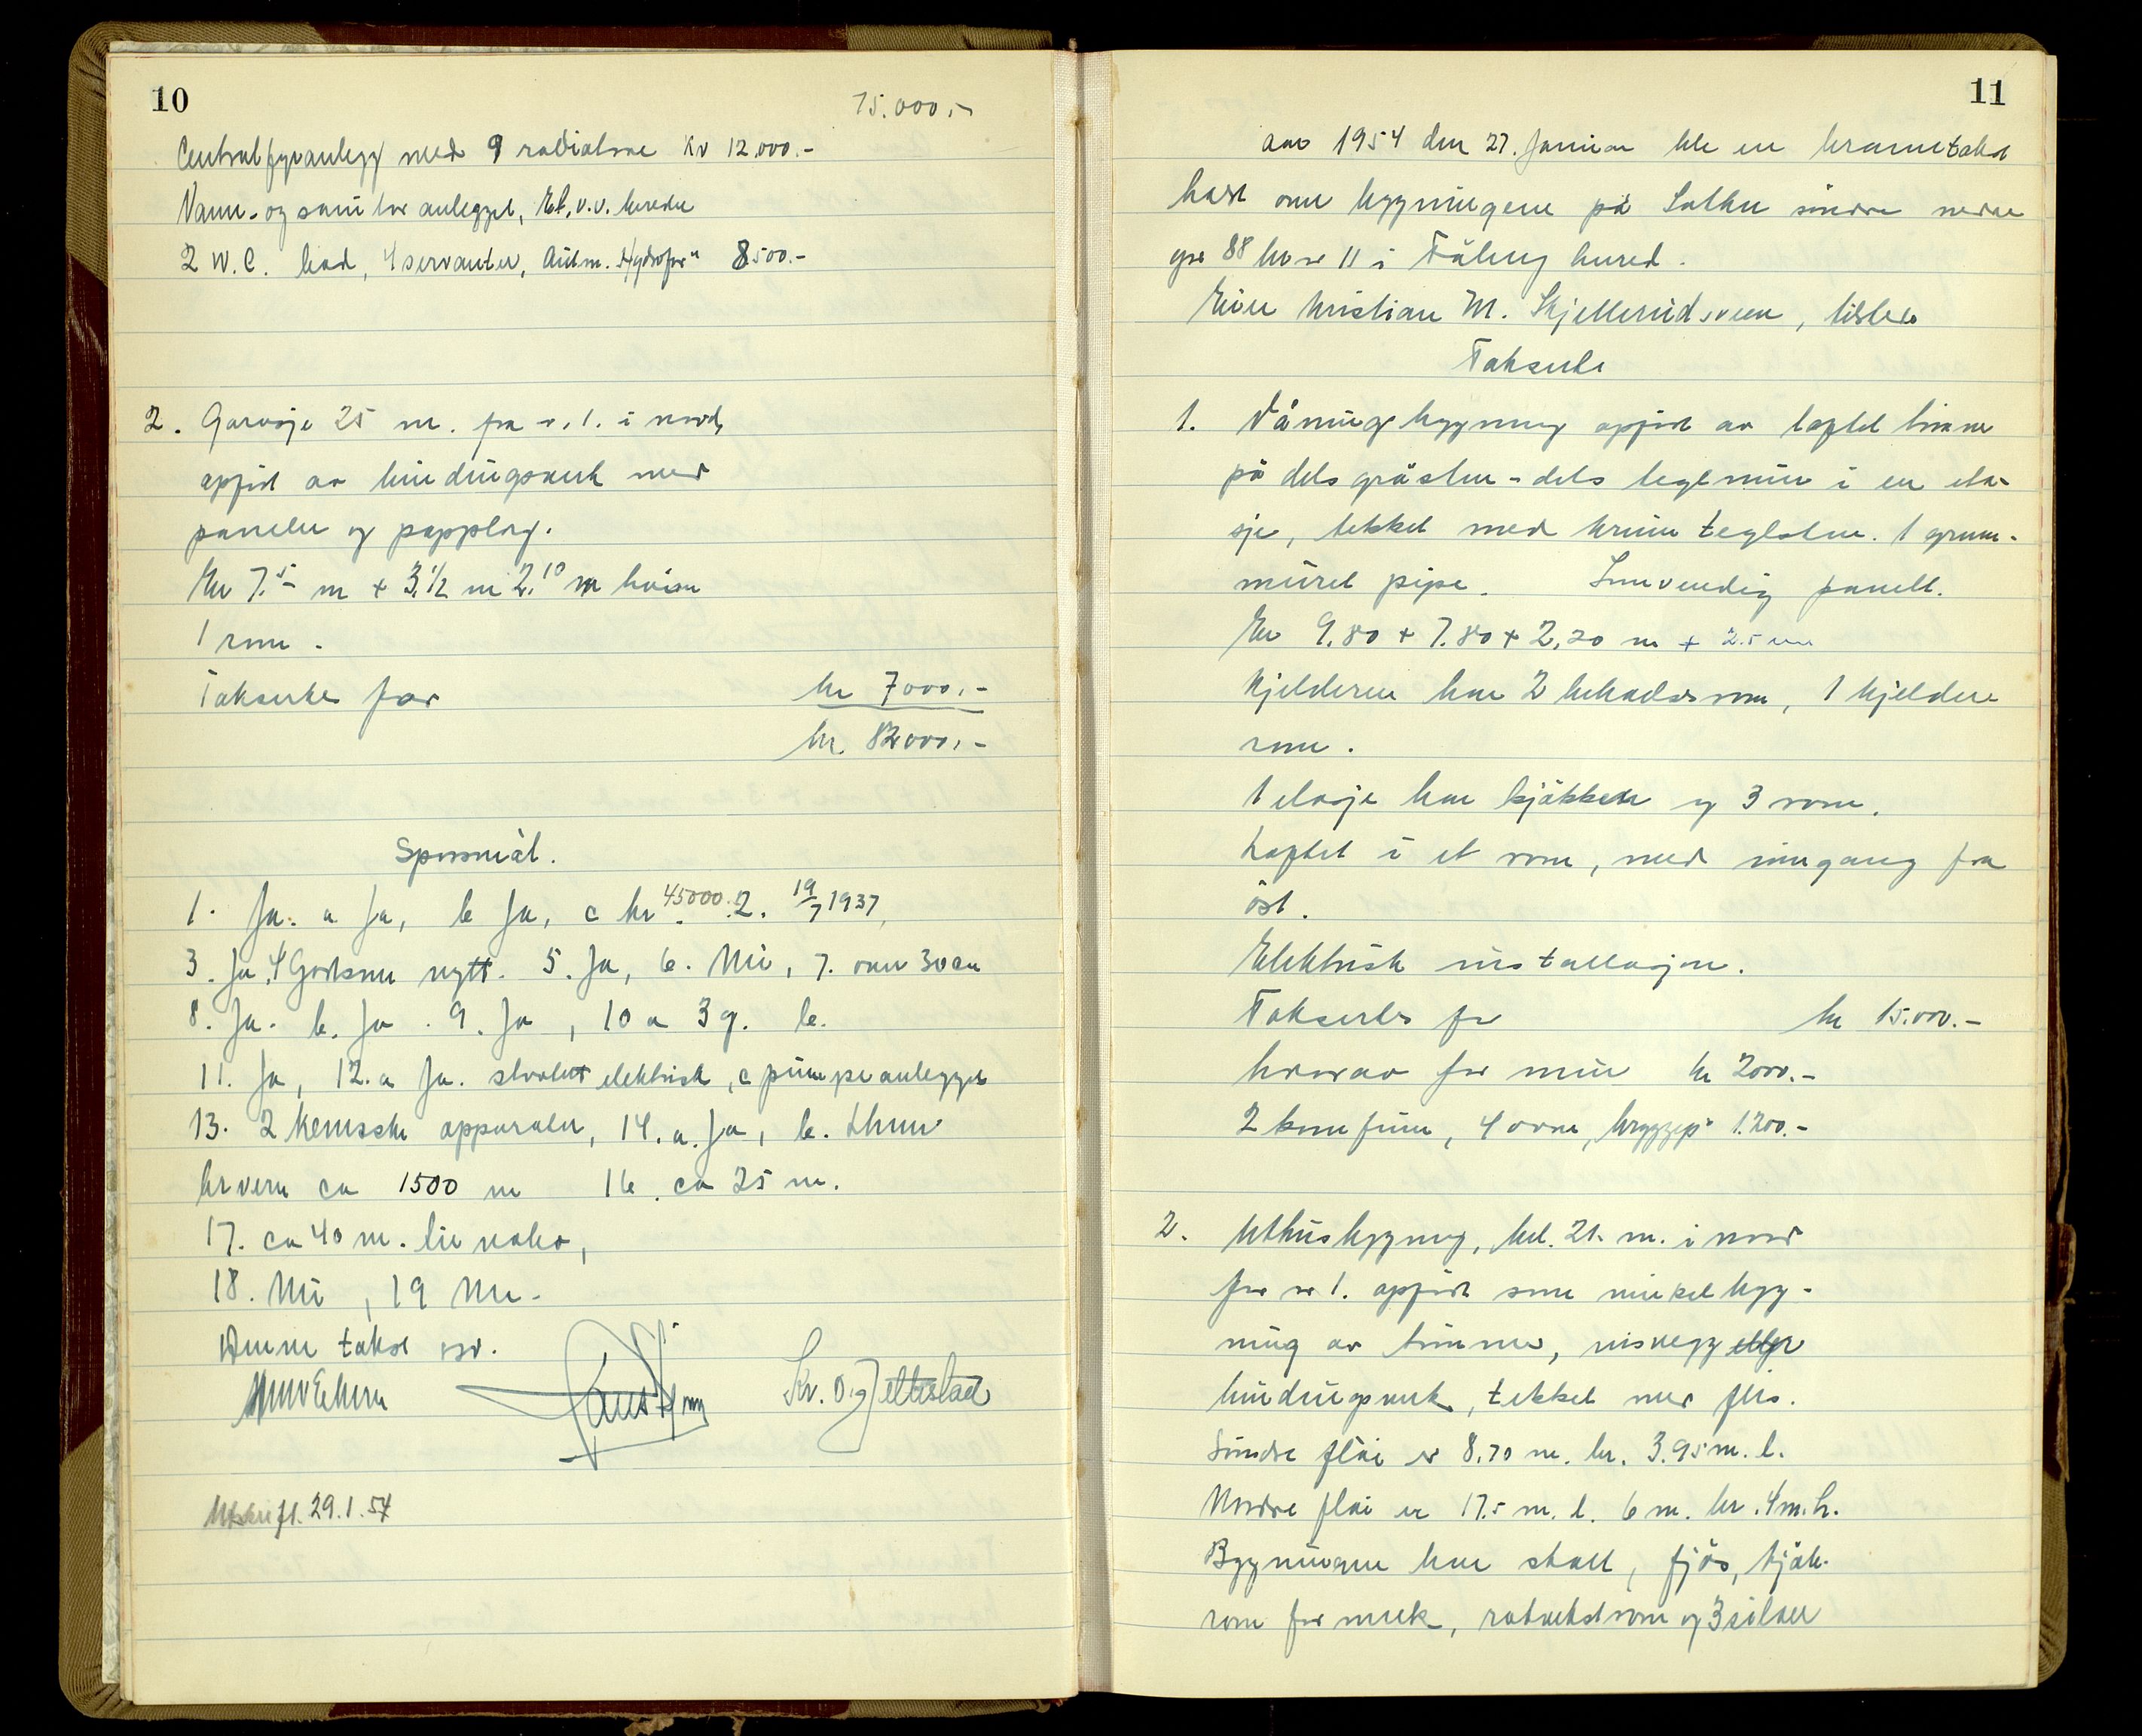 10
75.000,-
Centralfyranlegg med 9 radiatorer Kr 12.000.-
Vann- og sanitær anlegget, El. v.v. bereder
2 W.C. bad, 4 servanter, Autm. "Hydrofor" 8500.-
2. Garasje 25 m. fra nr. 1. i nord,
oppført av bindingsverk med
paneler og papplag.
Er 7.5 m + 3.1/2 m 2.10 m høi
1 rom.
Takseres for kr 7000.-
kr. 82000.-
Spørsmål.
1. Ja. a Ja, b Ja, c kr 45000. 2. 19/7 1937,
3. Ja. 4 nytt. 5. Ja, 6. Nei, 7. over 30 cm
8. Ja. b. Ja. 9. Ja, 10 a 3 g. b.
11. Ja, 12. a Ja. elektrisk, c pumpeanlegget
13. 2 kemiske apparater, 14. a. Ja, b.
brvern ca 1500 m 16. ca 25 m.
17. ca 40 m.
18. Nei, 19 Nei.
Denne takst osv.
Utskrift. 29.1.54
11
Aar 1954 den 27. Januar ble en branntakst
holdt over bygningene på søndre nedre
gnr 88 bnr 11 i Fåberg herred.
Eier Kristian M. Skjellerudsveen,
Takserte
1. Våningsbygning oppført av laftet tømmer
på dels gråsten - dels teglmur i en eta-
sje, tekket med krum teglsten. 1 grunn-
muret pipe. Innvendig panelt.
Er 9.80 + 7.80 + 2,20 m + 2.5 m
Kjelderen har 2 beboelsesrom, 1 kjelder
rom.
1 etasje har kjøkken og 3 rom.
Loftet i et rom, med inngang fra
öst.
Elektrisk installasjon.
Takseres for kr 15.000.-
hvorav for mur kr 2000.-
2 komfur, 4 ovne, bryggep. 1.200.-
2. Uthusbygning, bel. 21. m. i nord
for nr 1. oppført som vinkelbyg-
ning av tømmer,
bindingsverk, tekket med flis.
Søndre fløi er 8.70 m. br. 3.95 m. l.
Nordre fløi er 17.5 m. l. 6 m. br. 4 m. h.
Bygningene har stall, fjös,
rom for melk, og 3 siloer